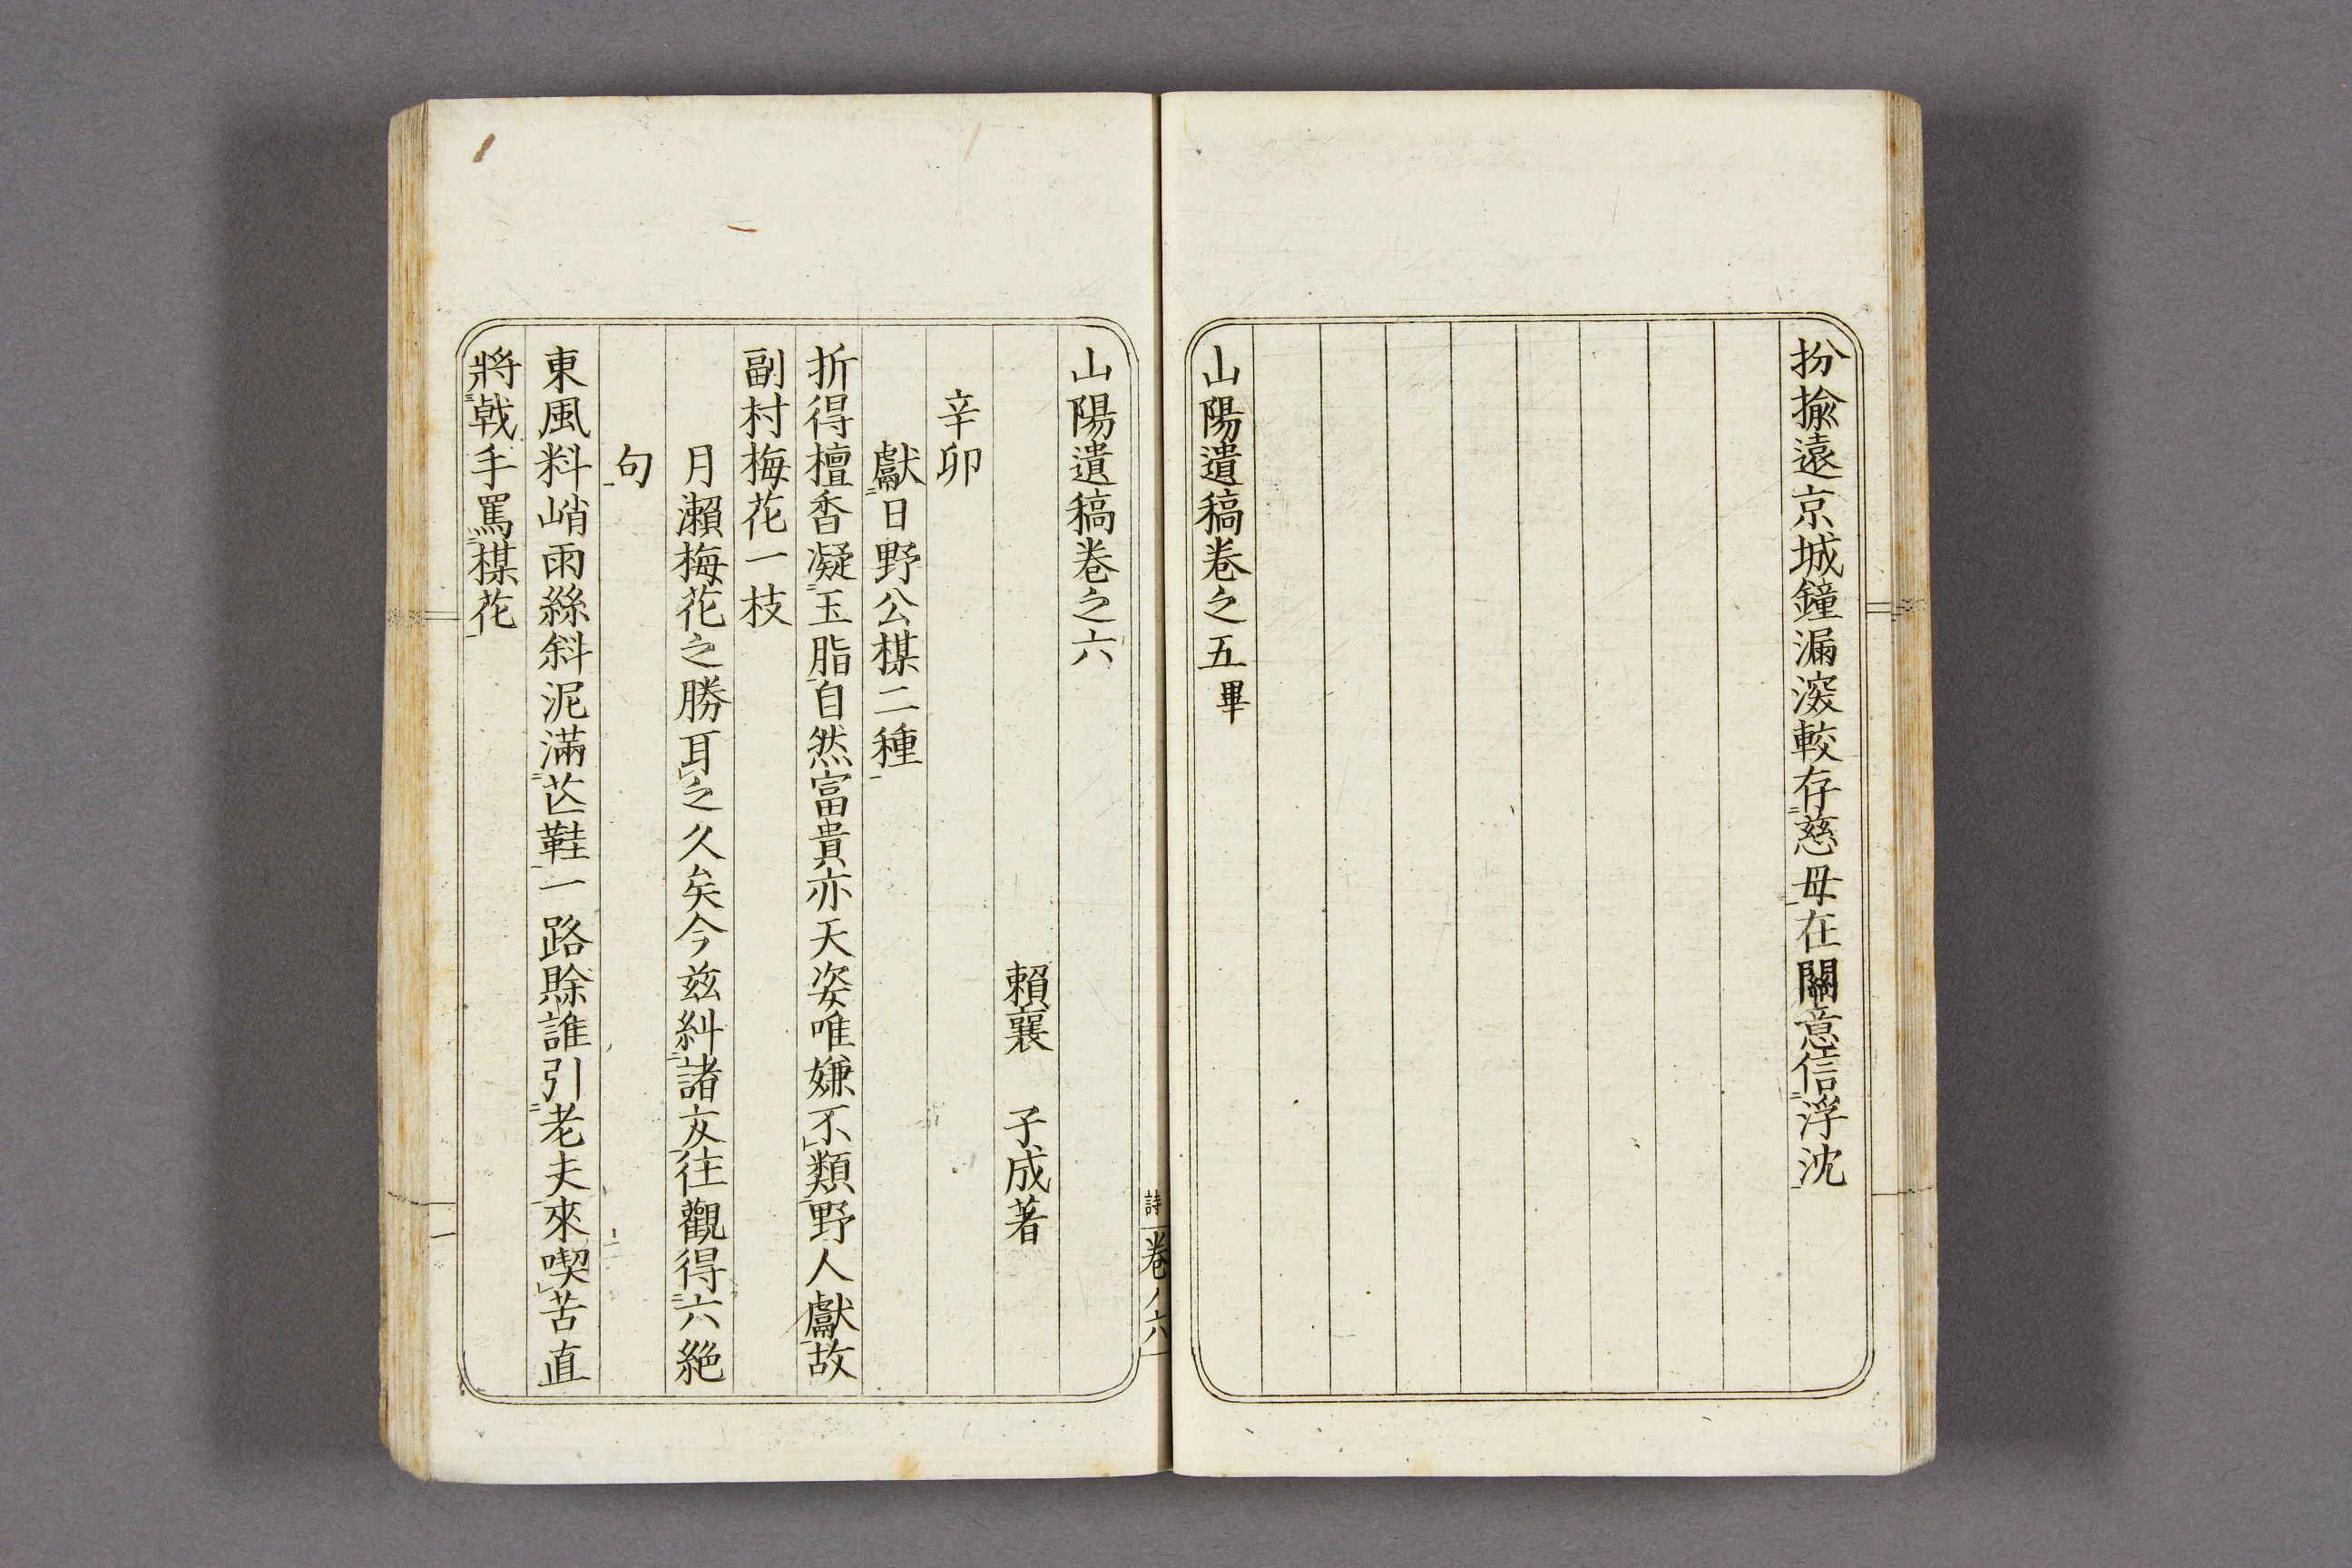 扮揄遠京城鐘漏深較存慈母在關意信浮沈
山陽遺稿卷之五畢
詩 卷ノ六
山陽遺稿卷之六
賴襄 子成著
辛卯
獻日野公楳二種
折得檀香凝玉脂自然富貴亦天姿唯嫌不類野人獻故
副村梅花一枝
月瀨梅花之勝耳之久矣今茲糾諸友往觀得六絶
句
東風料峭雨絲斜泥滿芒鞋一路賖誰引老夫來喫苦直
將戟手罵楳花
一